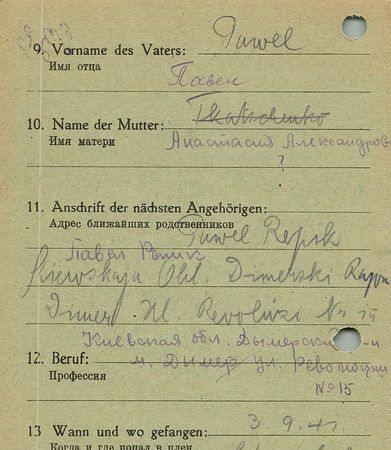 9. Vorname des Vaters: Pawel
Имя отца
Павел
10. Name der Mutter: Tkatschenko
Имя матери Анастасия Александров
?
11. Anschrift der nächsten Angehörigen:
Адрес ближайших родственников Pawel Repik
Павел Репик
Obl. Dimerski Rayon
Dimer Ul. Revoluzi No. 15
Киевская обл. Дымерский -н
12. Beruf: м. Дымер ул. Революции
Профессия №15
13 Wann und wo gefangen: 3.9.41.
Когда и где попал в плен